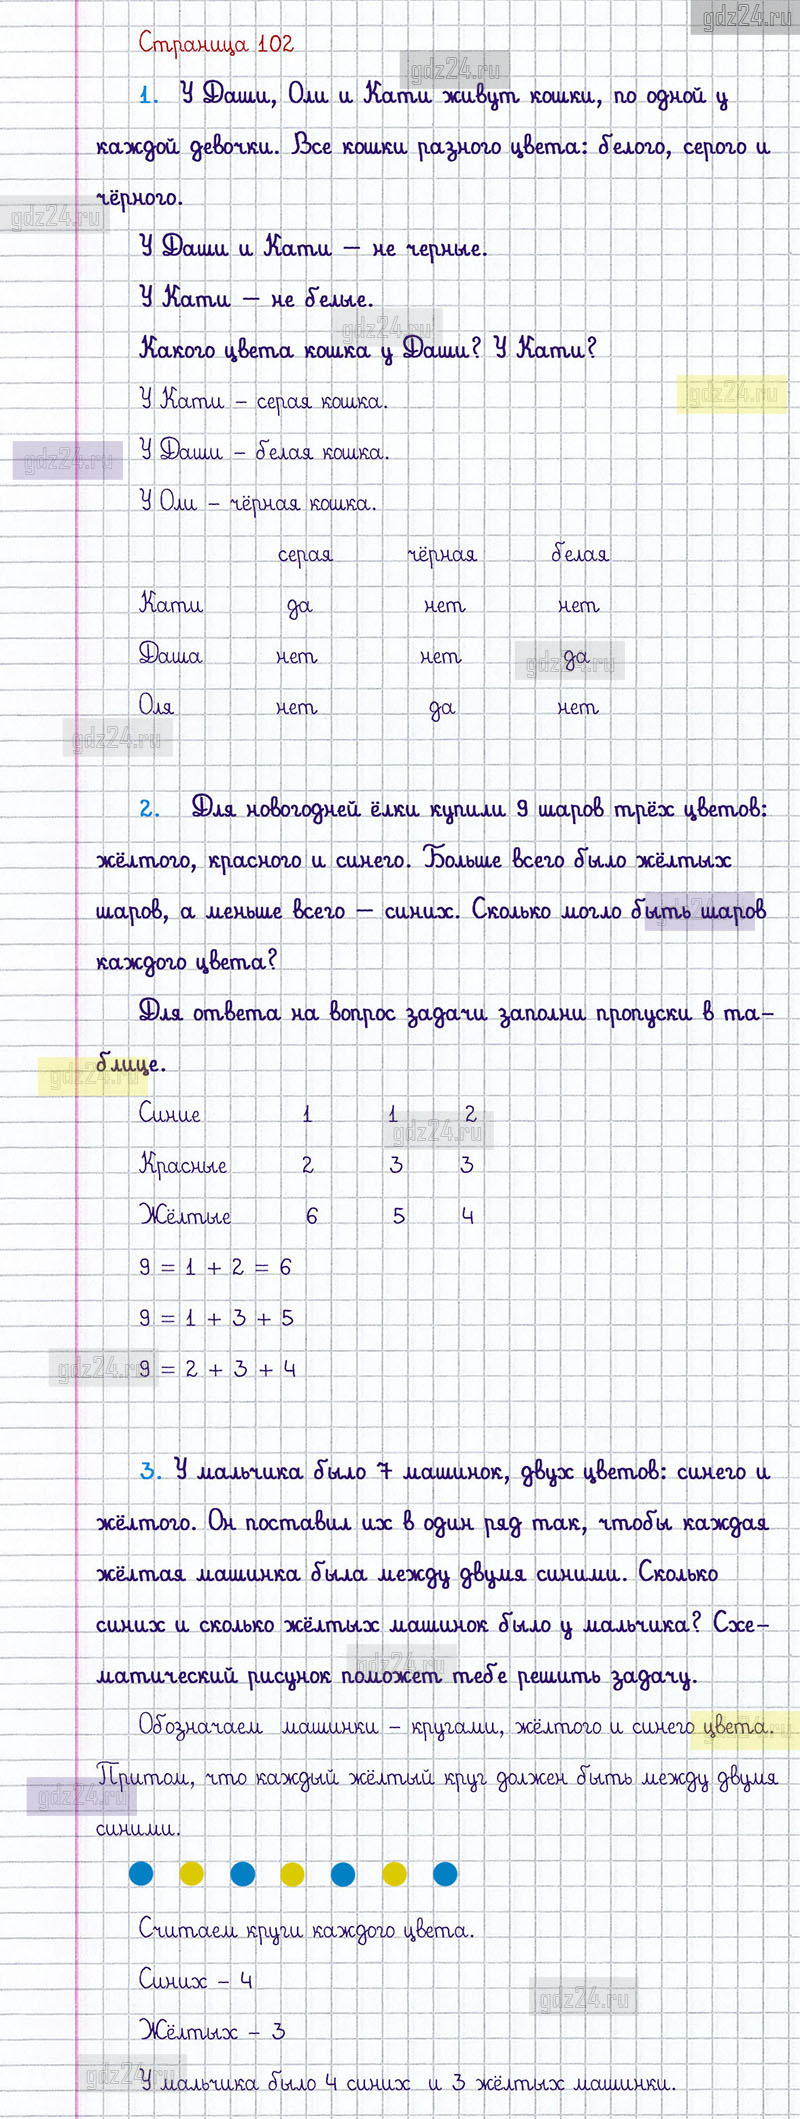 gdz24.ru
Страница 102
gdz24.ru
1. У Даши, Оли и Кати живут кошки, по одной у
каждой девочки. Все кошки разного цвета: белого, серого и
чёрного.
gdz24.ru
У Даши и Кати – не черные.
У Кати – не белые.
gdz24.ru
Какого цвета кошка у Даши? У Кати?
gdz24.ru
У Кати – серая кошка.
У Даши – белая кошка.
gdz24.ru
У Оли – чёрная кошка.
серая чёрная белая
Кати да нет нет
Даша нет нет да
gdz24.ru
Оля нет да нет
gdz24.ru
2. Для новогодней ёлки купили 9 шаров трёх цветов:
жёлтого, красного и синего. Больше всего было жёлтых
шаров, а меньше всего – синих. Сколько могло быть шаров
gdz24.ru
каждого цвета?
Для ответа на вопрос задачи заполни пропуски в та-
блице.
gdz24.ru
Синие 1 1 2
gdz24.ru
Красные 2 3 3
Жёлтые 6 5 4
9 = 1 + 2 = 6
9 = 1 + 3 + 5
9 = 2 + 3 + 4
gdz24.ru
3. У мальчика было 7 машинок, двух цветов: синего и
жёлтого. Он поставил их в один ряд так, чтобы каждая
жёлтая машинка была между двумя синими. Сколько
синих и сколько жёлтых машинок было у мальчика? Схе-
матический рисунок поможет тебе решить задачу.
gdz24.ru
Обозначаем машинки – кругами, жёлтого и синего цвета.
gdz24.ru
Притом, что каждый жёлтый круг должен быть между двумя
gdz24.ru
синими.
Считаем круги каждого цвета.
Синих – 4
gdz24.ru
Жёлтых – 3
gdz24.ru
У мальчика было 4 синих и 3 жёлтых машинки.